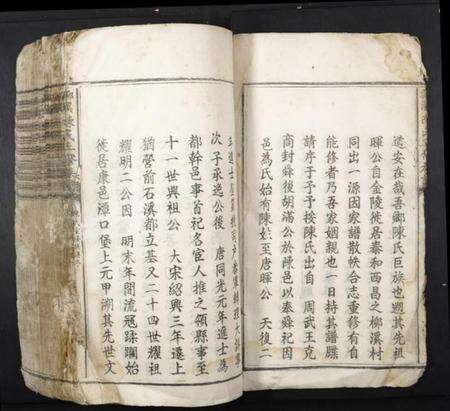 遺安在哉吾鄉陳氏巨族也遡其先祖
暉公自金陵徙居泰和西昌之柳溪村
同出一源因家譜散帙合志重修有自
能修者乃吾家姻親也一日持其譜縣
請序于予予按陳氏出自 周武王克
商封舜後胡滿公於陳邑以奉舜祀因
邑為氏始有陳姓至唐暉公 天復二
次子承逸公後 唐同光元年進士為
都幹邑事首祀名宦人推之領縣事至
十一世興祖公 大宋紹興三年遷上
猶營前石溪都立基又二十四世耀祖
耀明二公因 明末年間流冦蹂躙始
徙居康邑潭口堡上元甲溯其先世文